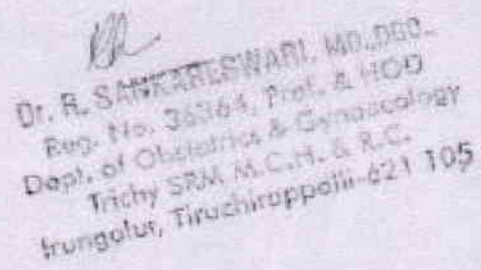 Dr. R. SANKARESWARI, MD.,DGO.,
Reg. No. 36364, Prof. & HOD
Dept. of Obstetrics & Gynaecology
Trichy SRM M.C.H. & R.C.
Irungalur, Tiruchirappalli-621 105